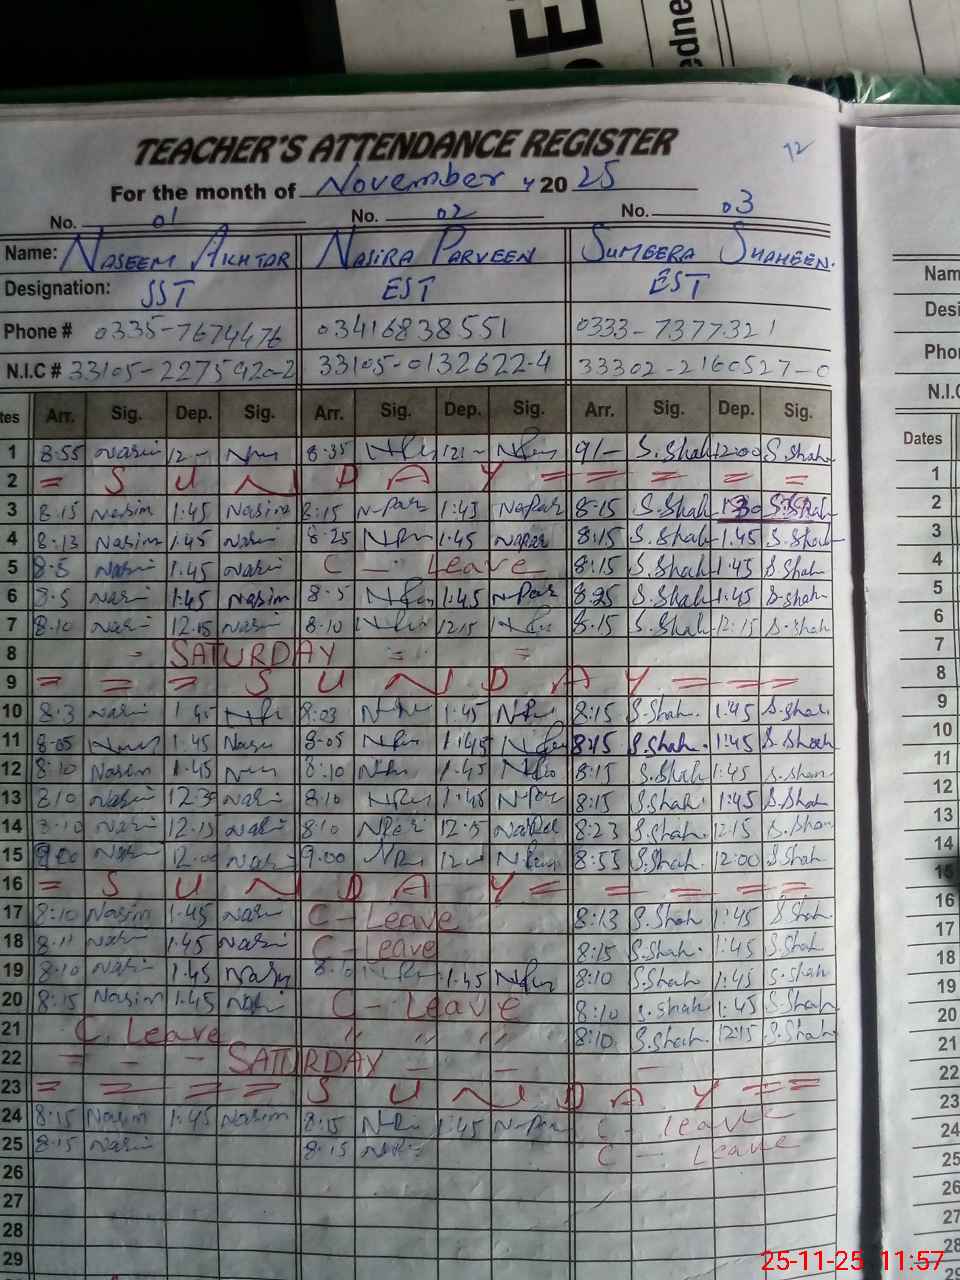 TEACHER'S ATTENDANCE REGISTER 92
For the month of November, 2025
No. 01 No. 02 No. 03
Name: NASEEM AKHTAR NASIRA PARVEEN SUMEERA SHAHEEN.
Designation: SST EST EST
Phone # 0335-7674676 03416838551 0333-7377321
N.I.C # 33105-2275920-2 33105-0132622-4 33302-2160527-0
tes Arr. Sig. Dep. Sig. Arr. Sig. Dep. Sig. Arr. Sig. Dep. Sig.
1 8:55 Nasim 12- 8:35 12- 9/- S.Shah 12:00 S.Shah
2 = S U N D A Y = = = = =
3 8:15 Nasim 1:45 Nasim 8:15 N-Par 1:45 NaPar 8:15 S.Shah 1:30 S.Shah
4 8:13 Nasim 1.45 Nasim 8:25 1:45 NaPar 8:15 S.Shah 1.45 S.Shah
5 8:5 Nasim 1.45 Nasim C - Leave 8:15 S.Shah 1:45 S.Shah
6 8.5 Nasim 1:45 Nasim 8.5 1:45 N-Par 8:25 S.Shah 1:45 S.Shah
7 8.10 Nasim 12.15 Nasim 8.10 12.15 8.15 S.Shah 12:15 S.Shah
8 - SATURDAY = =
9 = = = S U N D A Y = = =
10 8:3 Nasim 1:45 8:03 1:45 8:15 S.Shah. 1:45 S.Shah.
11 8-05 1:45 Nasim 8-05 1:45 8:15 S.Shah. 1:45 S.Shah
12 8:10 Nasim 1.45 8:10 1.45 8:15 S.Shah 1:45 S.Shah
13 8:10 Nasim 12:35 Nasim 8:10 1:45 N-Par 8:15 S.Shah. 1:45 S.Shah
14 8:10 Nasim 12.15 Nasim 8:10 12:15 8:23 S.Shah. 12:15 S.Shah
15 9:00 Nasim 12:00 Nasim 9.00 8:55 S.Shah. 12:00 S.Shah
16 = S U N D A Y = = = = =
17 8:10 Nasim 1.45 Nasim C - Leave 8:13 S.Shah 1:45 S.Shah
18 Nasim 1.45 Nasim C - Leave 8:15 S.Shah. 1:45 S.Shah
19 8:10 Nasim 1.45 Nasim 8.10 1.45 8:10 S.Shah 1:45 S.Shah
20 8:15 Nasim 1.45 Nasim C - Leave 8:10 S.Shah 1:45 S.Shah
21 C. Leave " " " " 8:10 S.Shah. 12:15 S.Shah
22 = - - SATURDAY - - -
23 = = = = S U N D A Y = =
24 8:15 Nasim 1:45 Nasim 8:15 1:45 N-Par C - Leave
25 8:15 Nasim 8:15 C - Leave
26
27
28
29
Nam
Desi
Pho
N.I.C
Dates
1
2
3
4
5
6
7
8
9
10
11
12
13
14
15
16
17
18
19
20
21
22
23
24
25
26
27
28
25-11-25 11:57